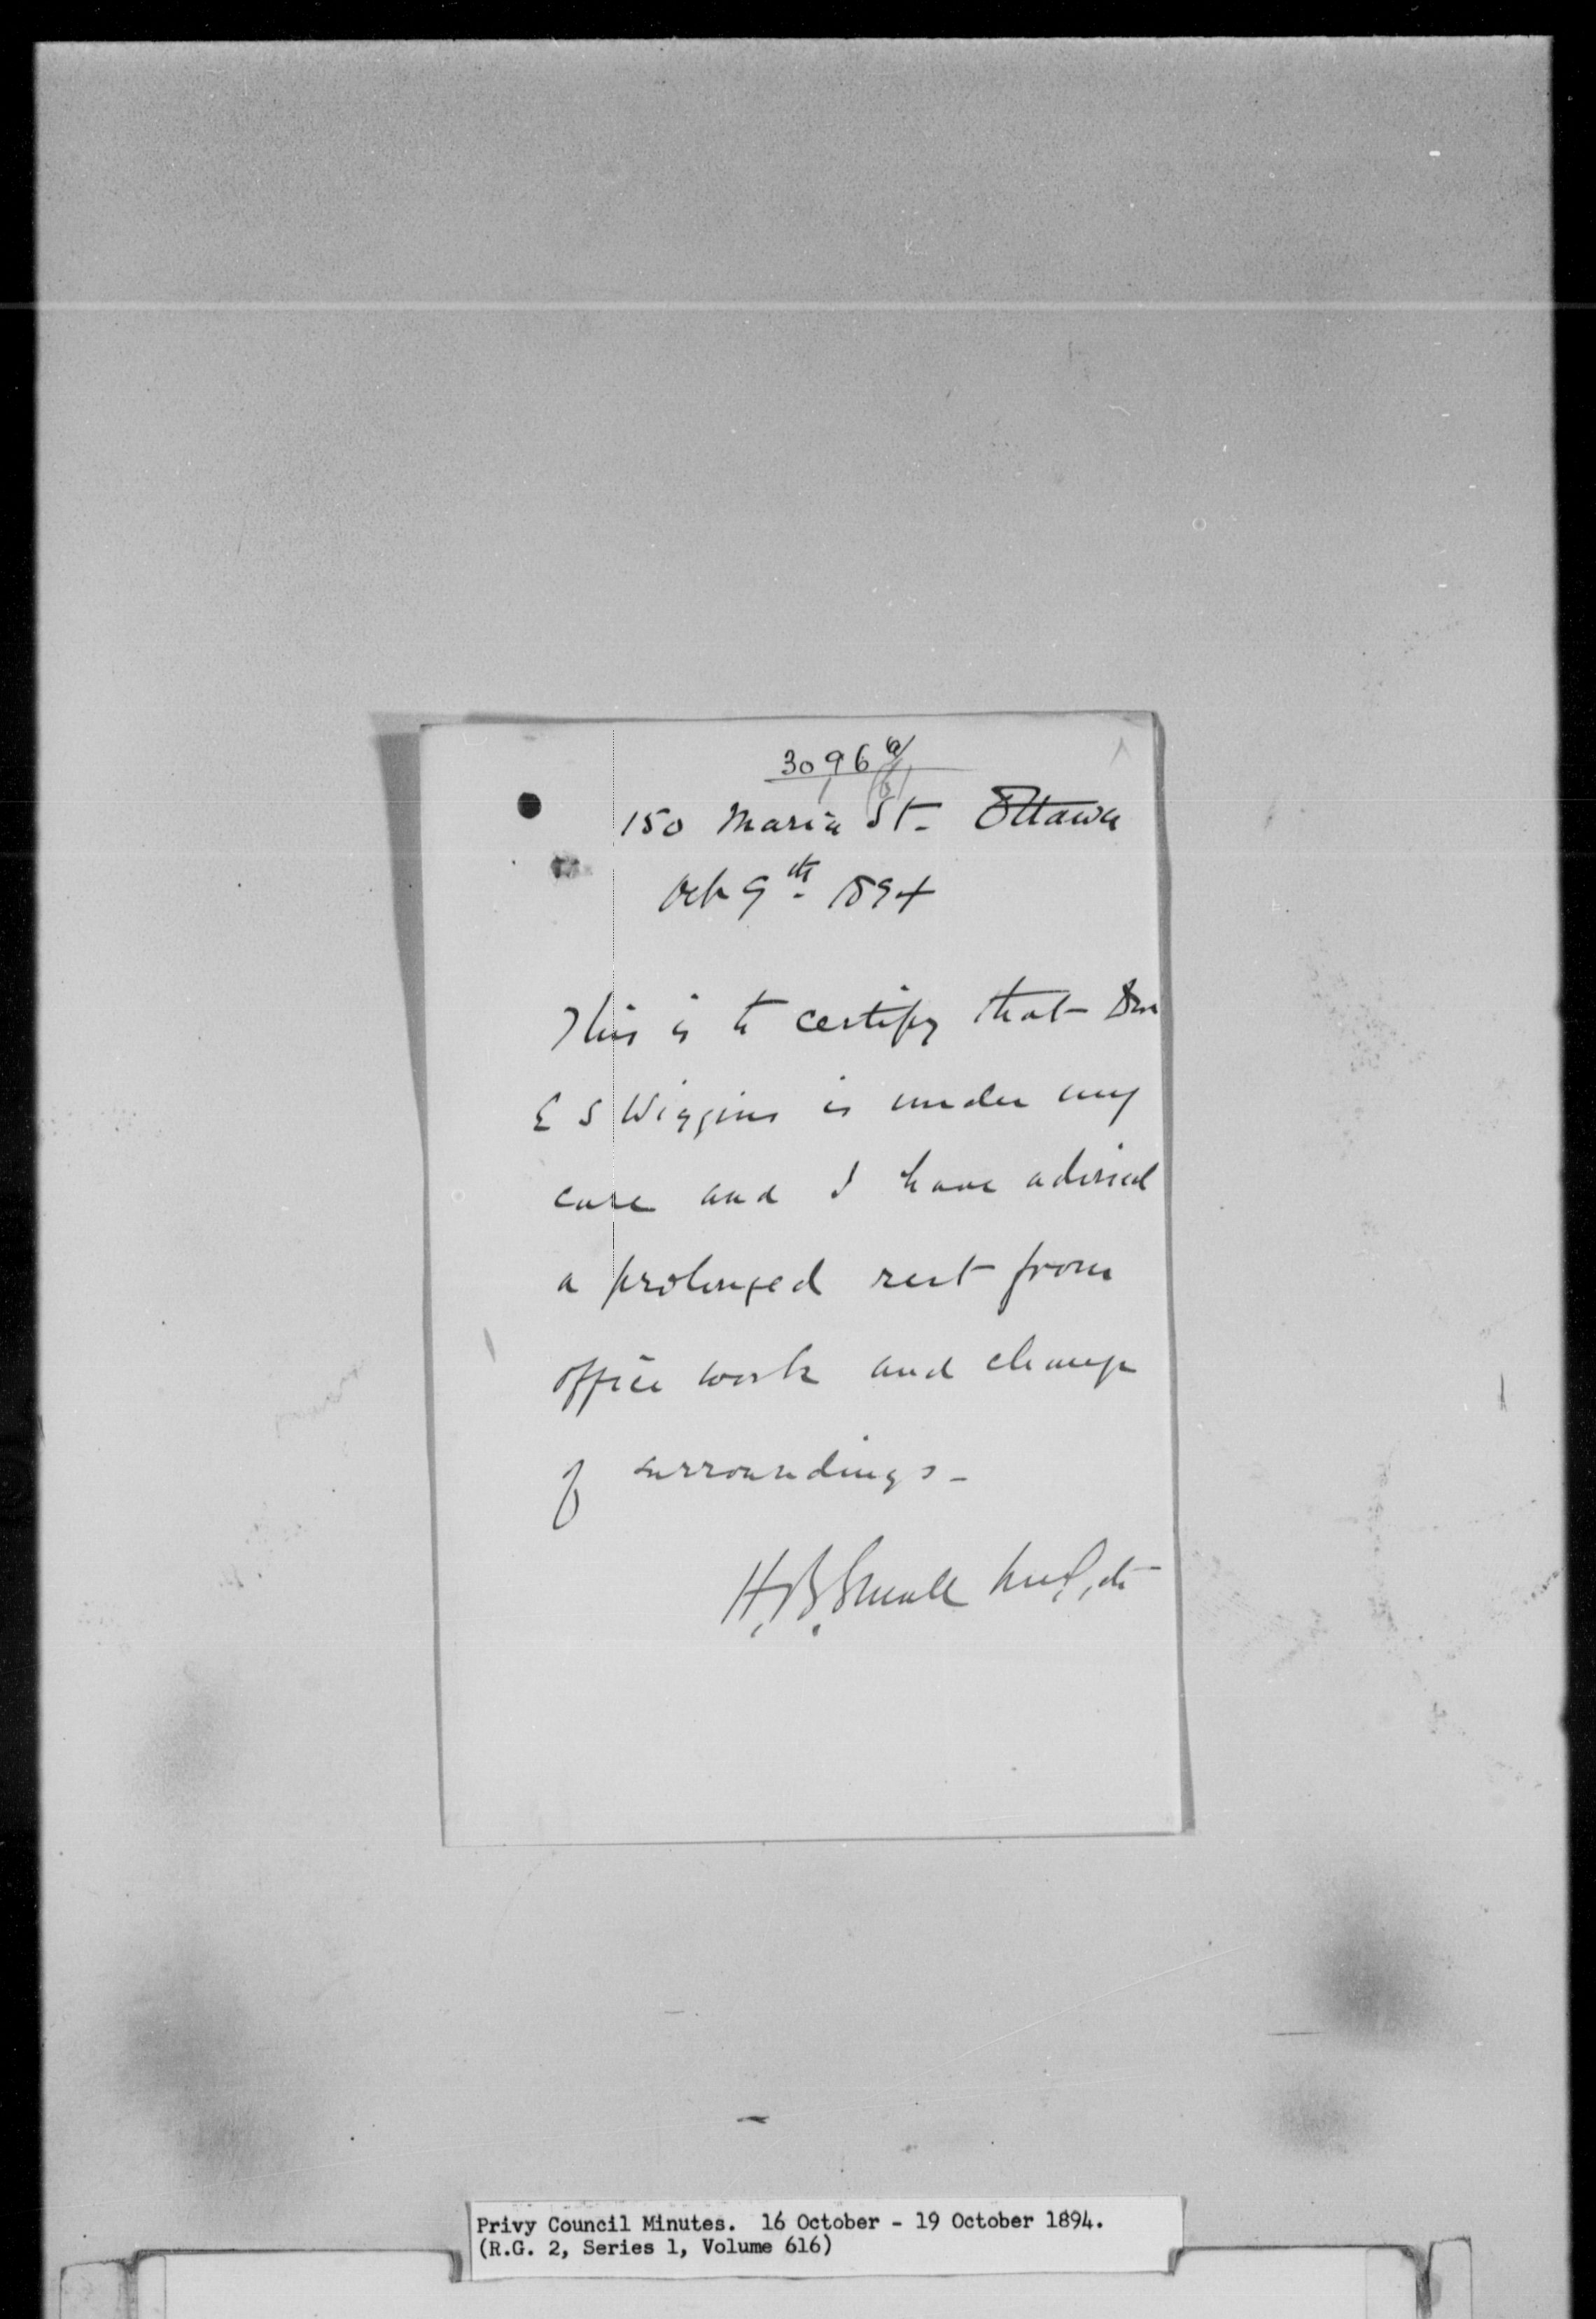 3096 a/
150 Maria St. Ottawa
Oct 9th. 1894
This is to certify that Dr
E S Wiggins is under my
care and I have advised
a prolonged rest from
office work and change
of surroundings -
H. B. Small
Privy Council Minutes. 16 October - 19 October 1894.
(R.G. 2, Series 1, Volume 616)